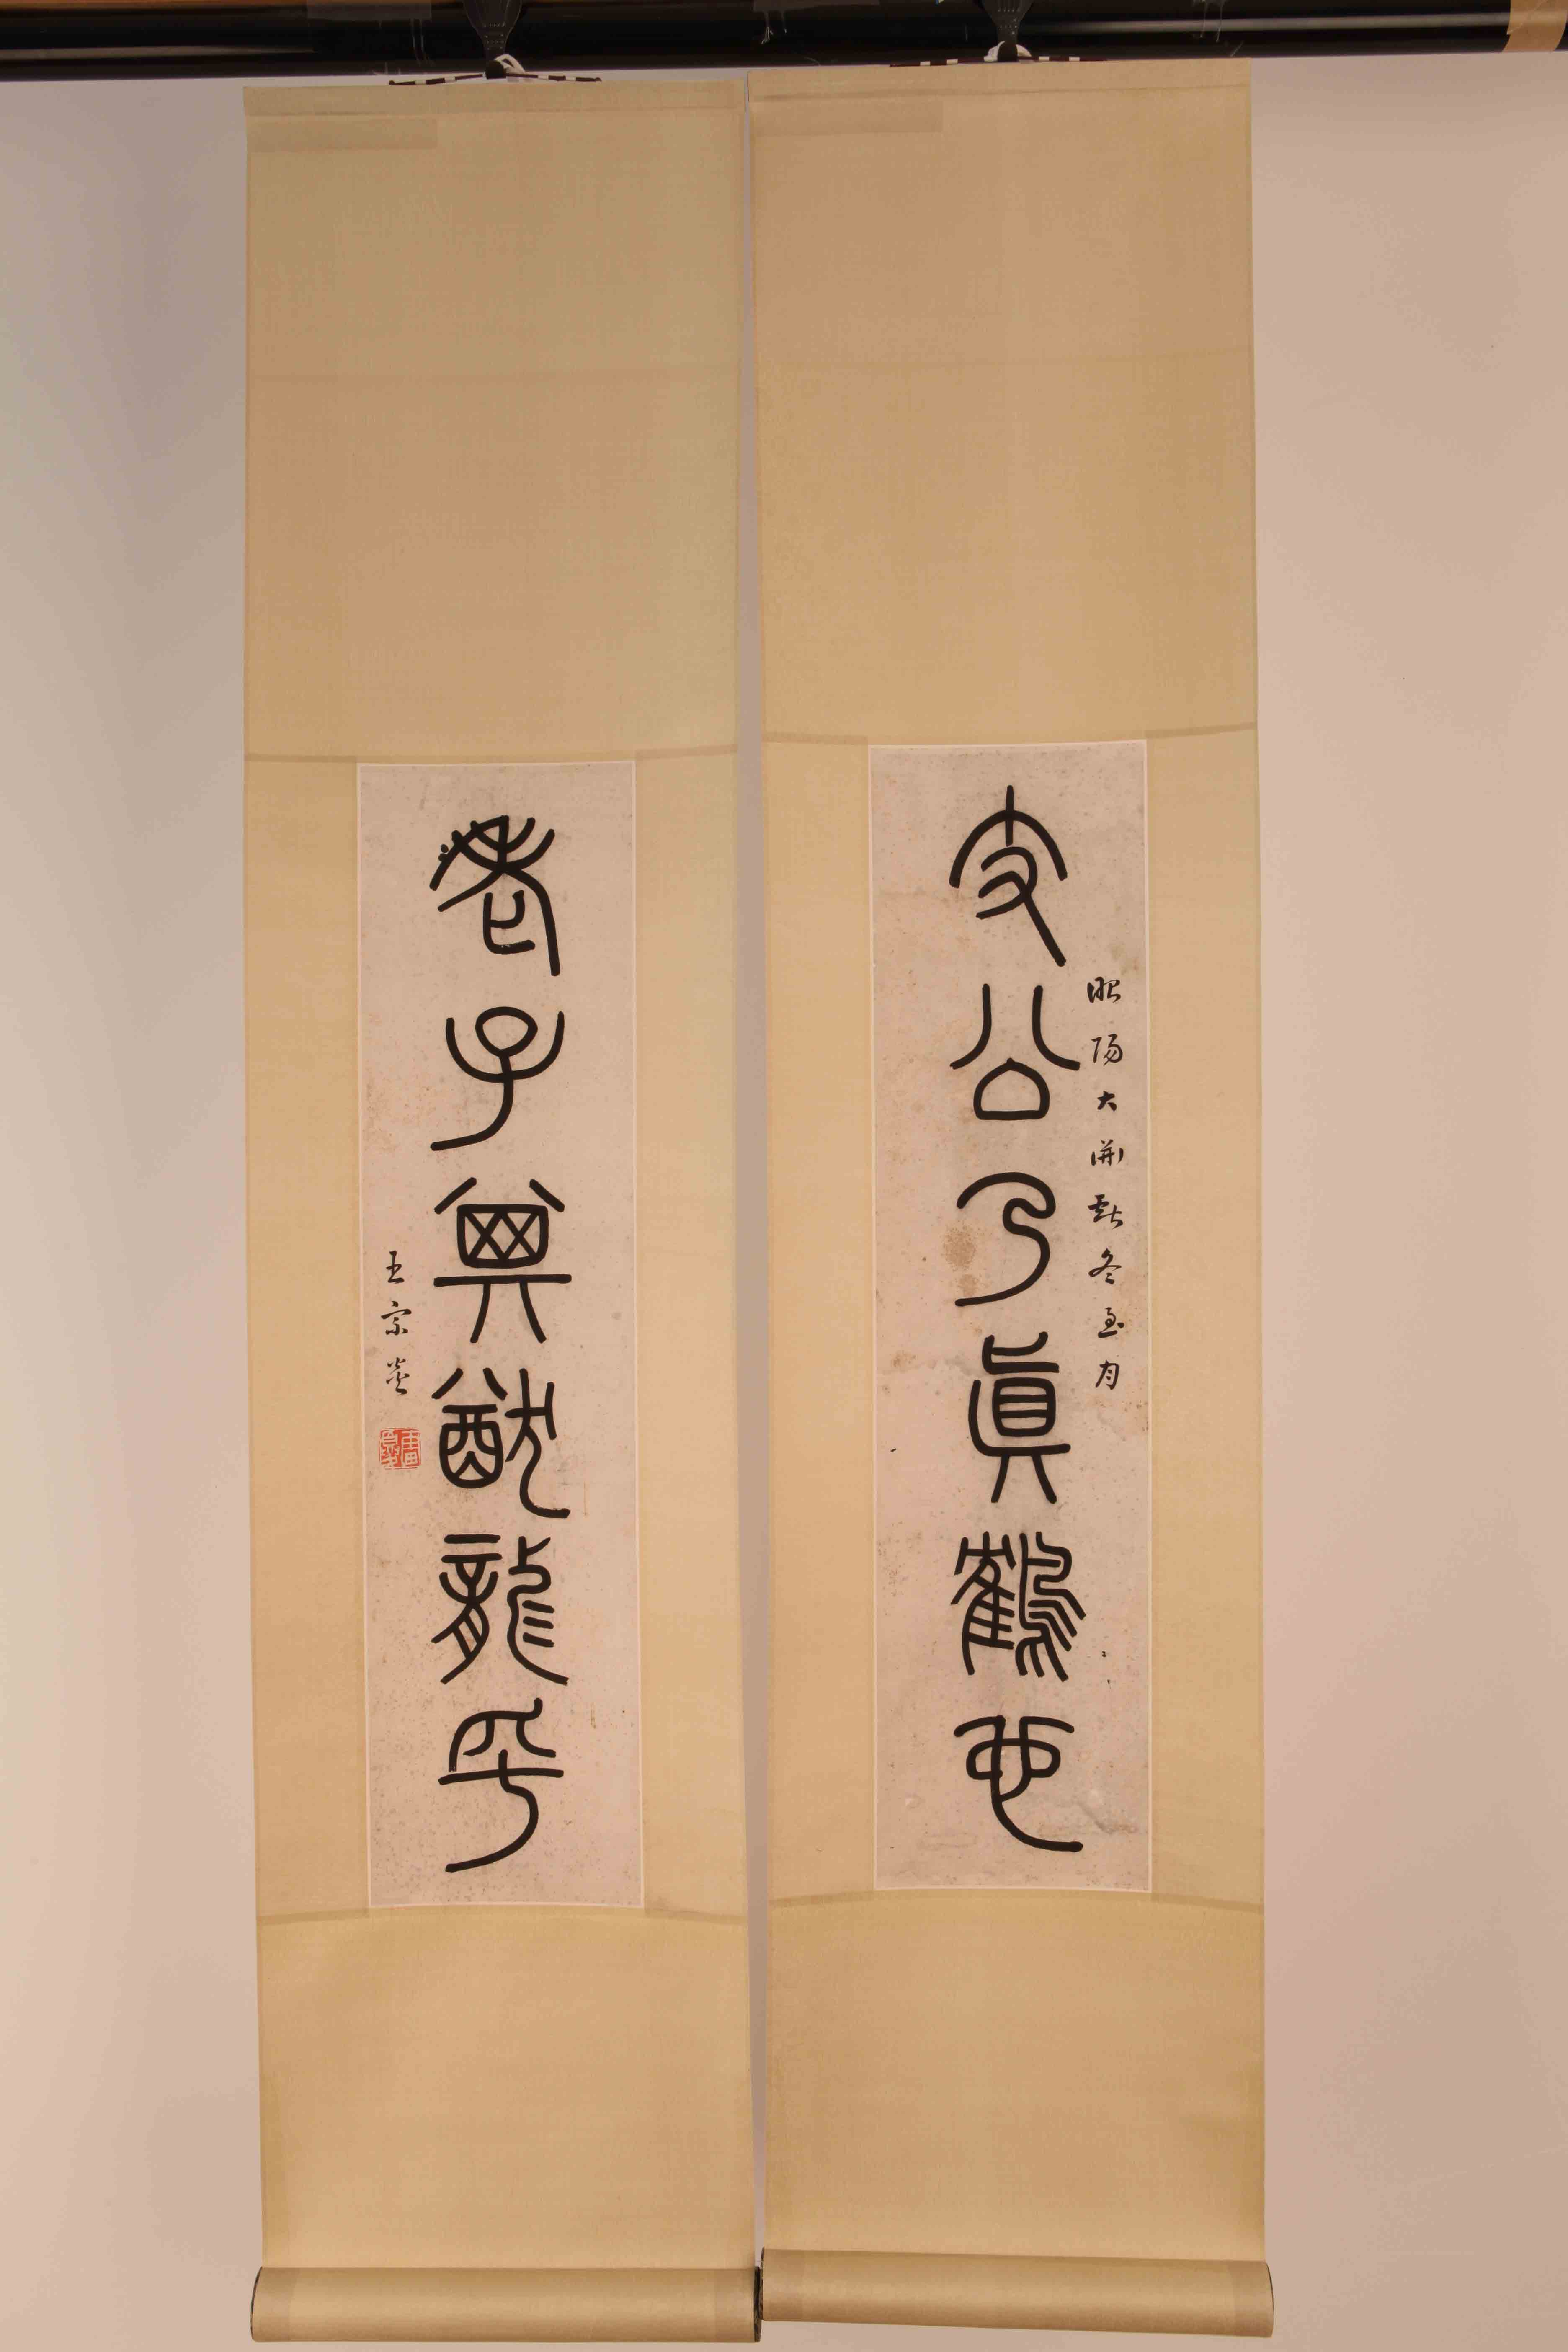 支公乃眞鶴也
昭陽大淵獻冬至月
老子其猶龍乎
王宗炎